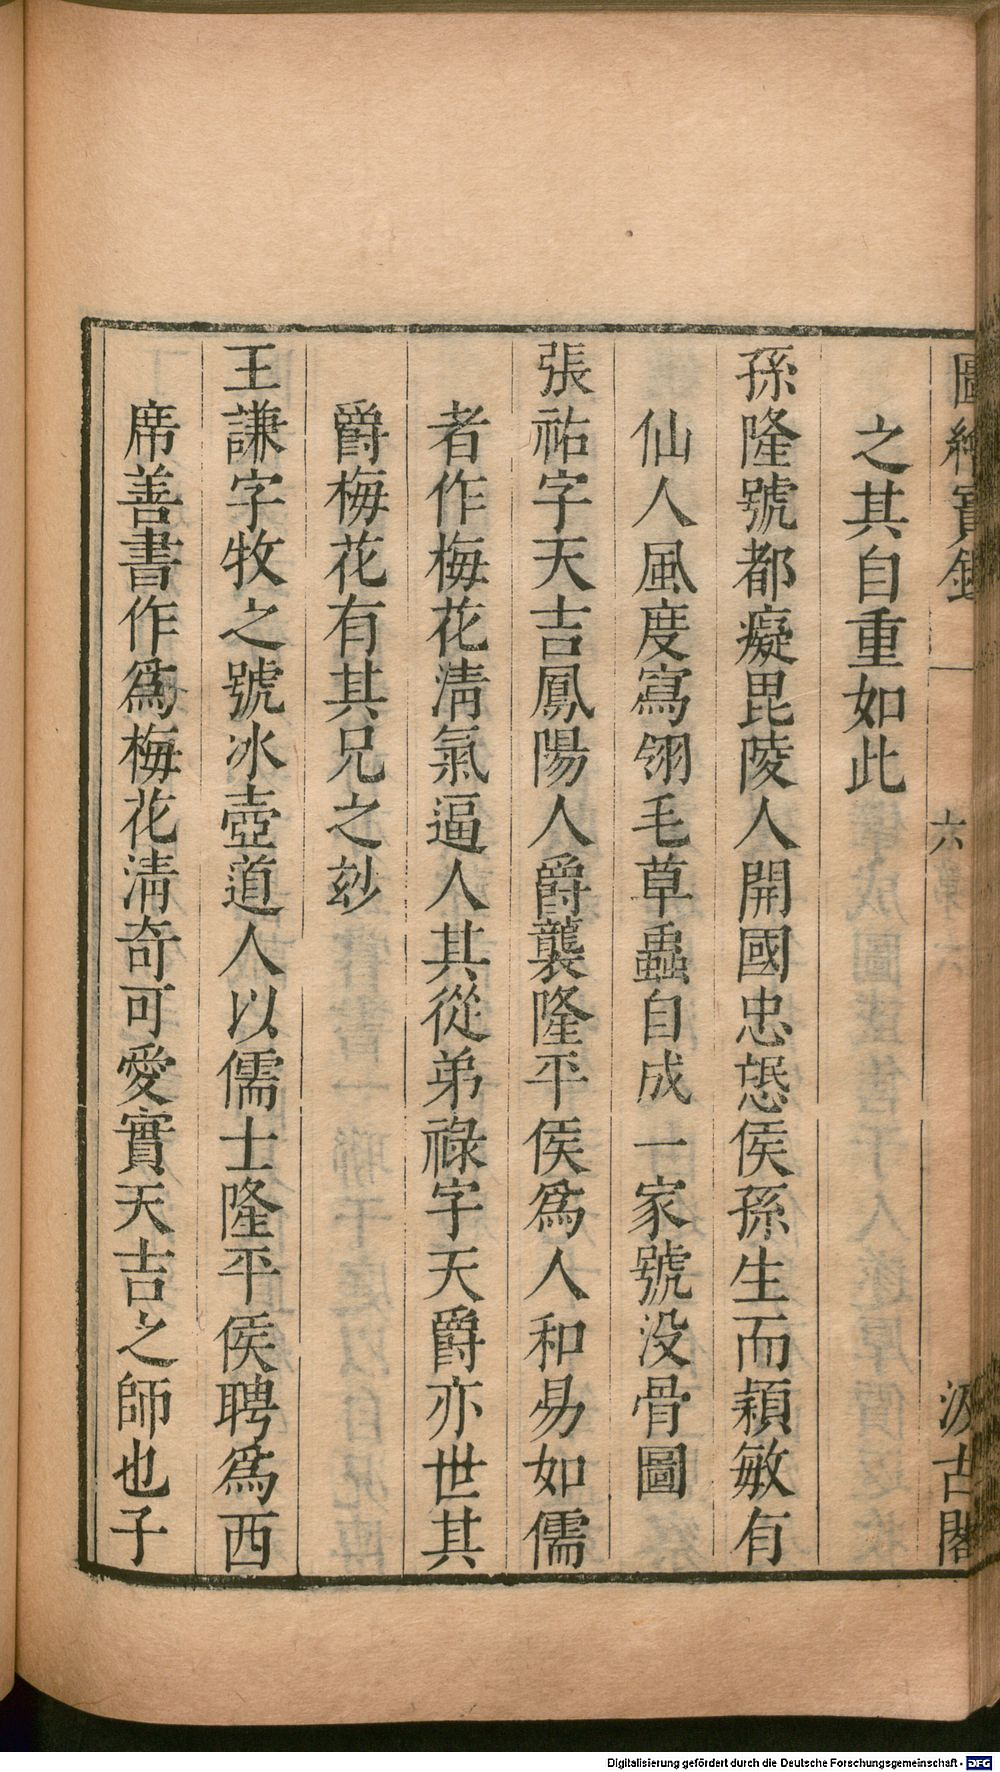 圖繪寶鑑
六
汲古閣
之其自重如此
孫隆號都癡毘陵人開國忠愍侯孫生而穎敏有
仙人風度寫翎毛草蟲自成一家號没骨圖
張祐字天吉鳳陽人爵襲隆平侯爲人和易如儒
者作梅花淸氣逼人其從弟祿字天爵亦世其
爵梅花有其兄之玅
王謙字牧之號冰壺道人以儒士隆平侯聘爲西
席善書作爲梅花淸奇可愛實天吉之師也子
Digitalisierung gefördert durch die Deutsche Forschungsgemeinschaft - DFG